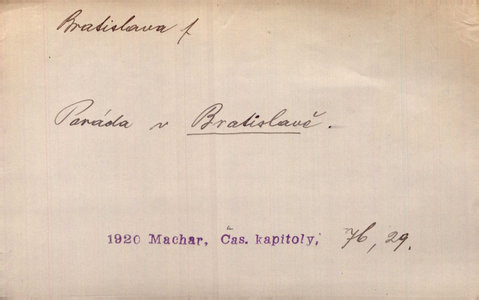 Bratislava f
Paráda v Bratislavě.
1920 Machar, Čas. kapitoly, 76, 29.